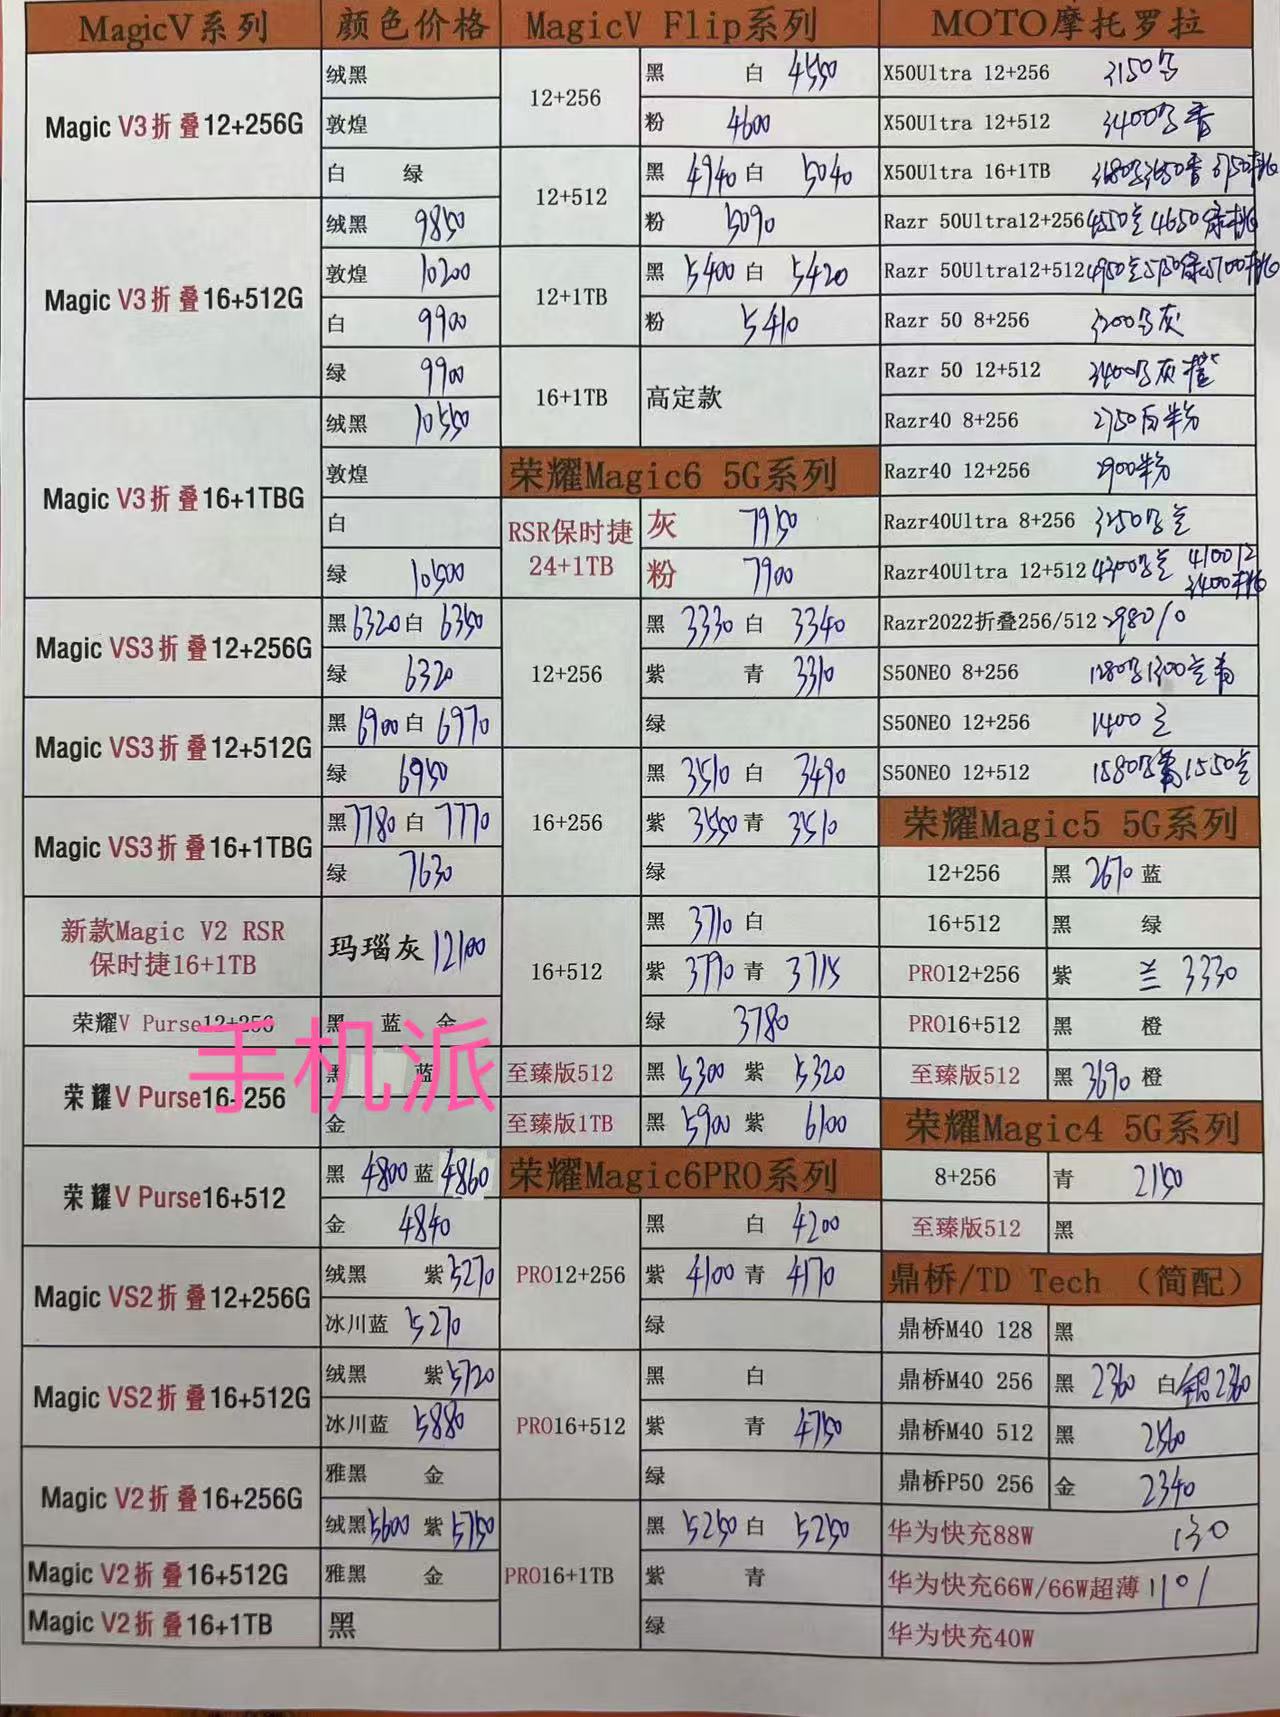 MagicV系列 颜色价格
Magic V3折叠12+256G
绒黑
敦煌
白 绿
Magic V3折叠16+512G
绒黑 9850
敦煌 10200
白 9900
绿 9900
Magic V3折叠16+1TBG
绒黑 10550
敦煌
白
绿 10500
Magic VS3折叠12+256G
黑 6320 白 6350
绿 6320
Magic VS3折叠12+512G
黑 6900 白 6970
绿 6950
Magic VS3折叠16+1TBG
黑 7780 白 7770
绿 7630
新款Magic V2 RSR
保时捷16+1TB
玛瑙灰 12100
荣耀V Purse12+256 黑 蓝 金
手机派
荣耀V Purse16+256
黑 蓝
金
荣耀V Purse16+512
黑 4800 蓝 4860
金 4840
Magic VS2折叠12+256G
绒黑 紫 5270
冰川蓝 5270
Magic VS2折叠16+512G
绒黑 紫 5720
冰川蓝 5880
Magic V2折叠16+256G
雅黑 金
绒黑 5600 紫 5750
Magic V2折叠16+512G 雅黑 金
Magic V2折叠16+1TB 黑
MagicV Flip系列
12+256
黑 白 4550
粉 4600
12+512
黑 4940 白 5040
粉 5090
12+1TB
黑 5400 白 5420
粉 5410
16+1TB 高定款
荣耀Magic6 5G系列
RSR保时捷
24+1TB
灰 7950
粉 7900
12+256
黑 3330 白 3340
紫 青 3310
绿
16+256
黑 3510 白 3490
紫 3550 青 3510
绿
16+512
黑 3710 白
紫 3790 青 3715
绿 3780
至臻版512 黑 5300 紫 5320
至臻版1TB 黑 5900 紫 6100
荣耀Magic6PRO系列
PRO12+256
黑 白 4200
紫 4100 青 4170
绿
PRO16+512
黑 白
紫 青 4750
绿
PRO16+1TB
黑 5250 白 5250
紫 青
绿
MOTO摩托罗拉
X50Ultra 12+256 3150
X50Ultra 12+512 3400
X50Ultra 16+1TB
Razr 50Ultra12+256 4550 4650
Razr 50Ultra12+512 4950
Razr 50 8+256 3200 灰
Razr 50 12+512 3400 灰橙
Razr40 8+256 2750 白粉
Razr40 12+256 2900粉
Razr40Ultra 8+256 3250
Razr40Ultra 12+512 4200 4100
3400
Razr2022折叠256/512 2980
S50NEO 8+256 1280 1300
S50NEO 12+256 1400 兰
S50NEO 12+512 1580 1550兰
荣耀Magic5 5G系列
12+256 黑 2670 蓝
16+512 黑 绿
PRO12+256 紫 兰 3330
PRO16+512 黑 橙
至臻版512 黑 3690 橙
荣耀Magic4 5G系列
8+256 青 2150
至臻版512 黑
鼎桥/TD Tech （简配）
鼎桥M40 128 黑
鼎桥M40 256 黑 2360 白 银2360
鼎桥M40 512 黑 2560
鼎桥P50 256 金 2340
华为快充88W 130
华为快充66W/66W超薄 110
华为快充40W